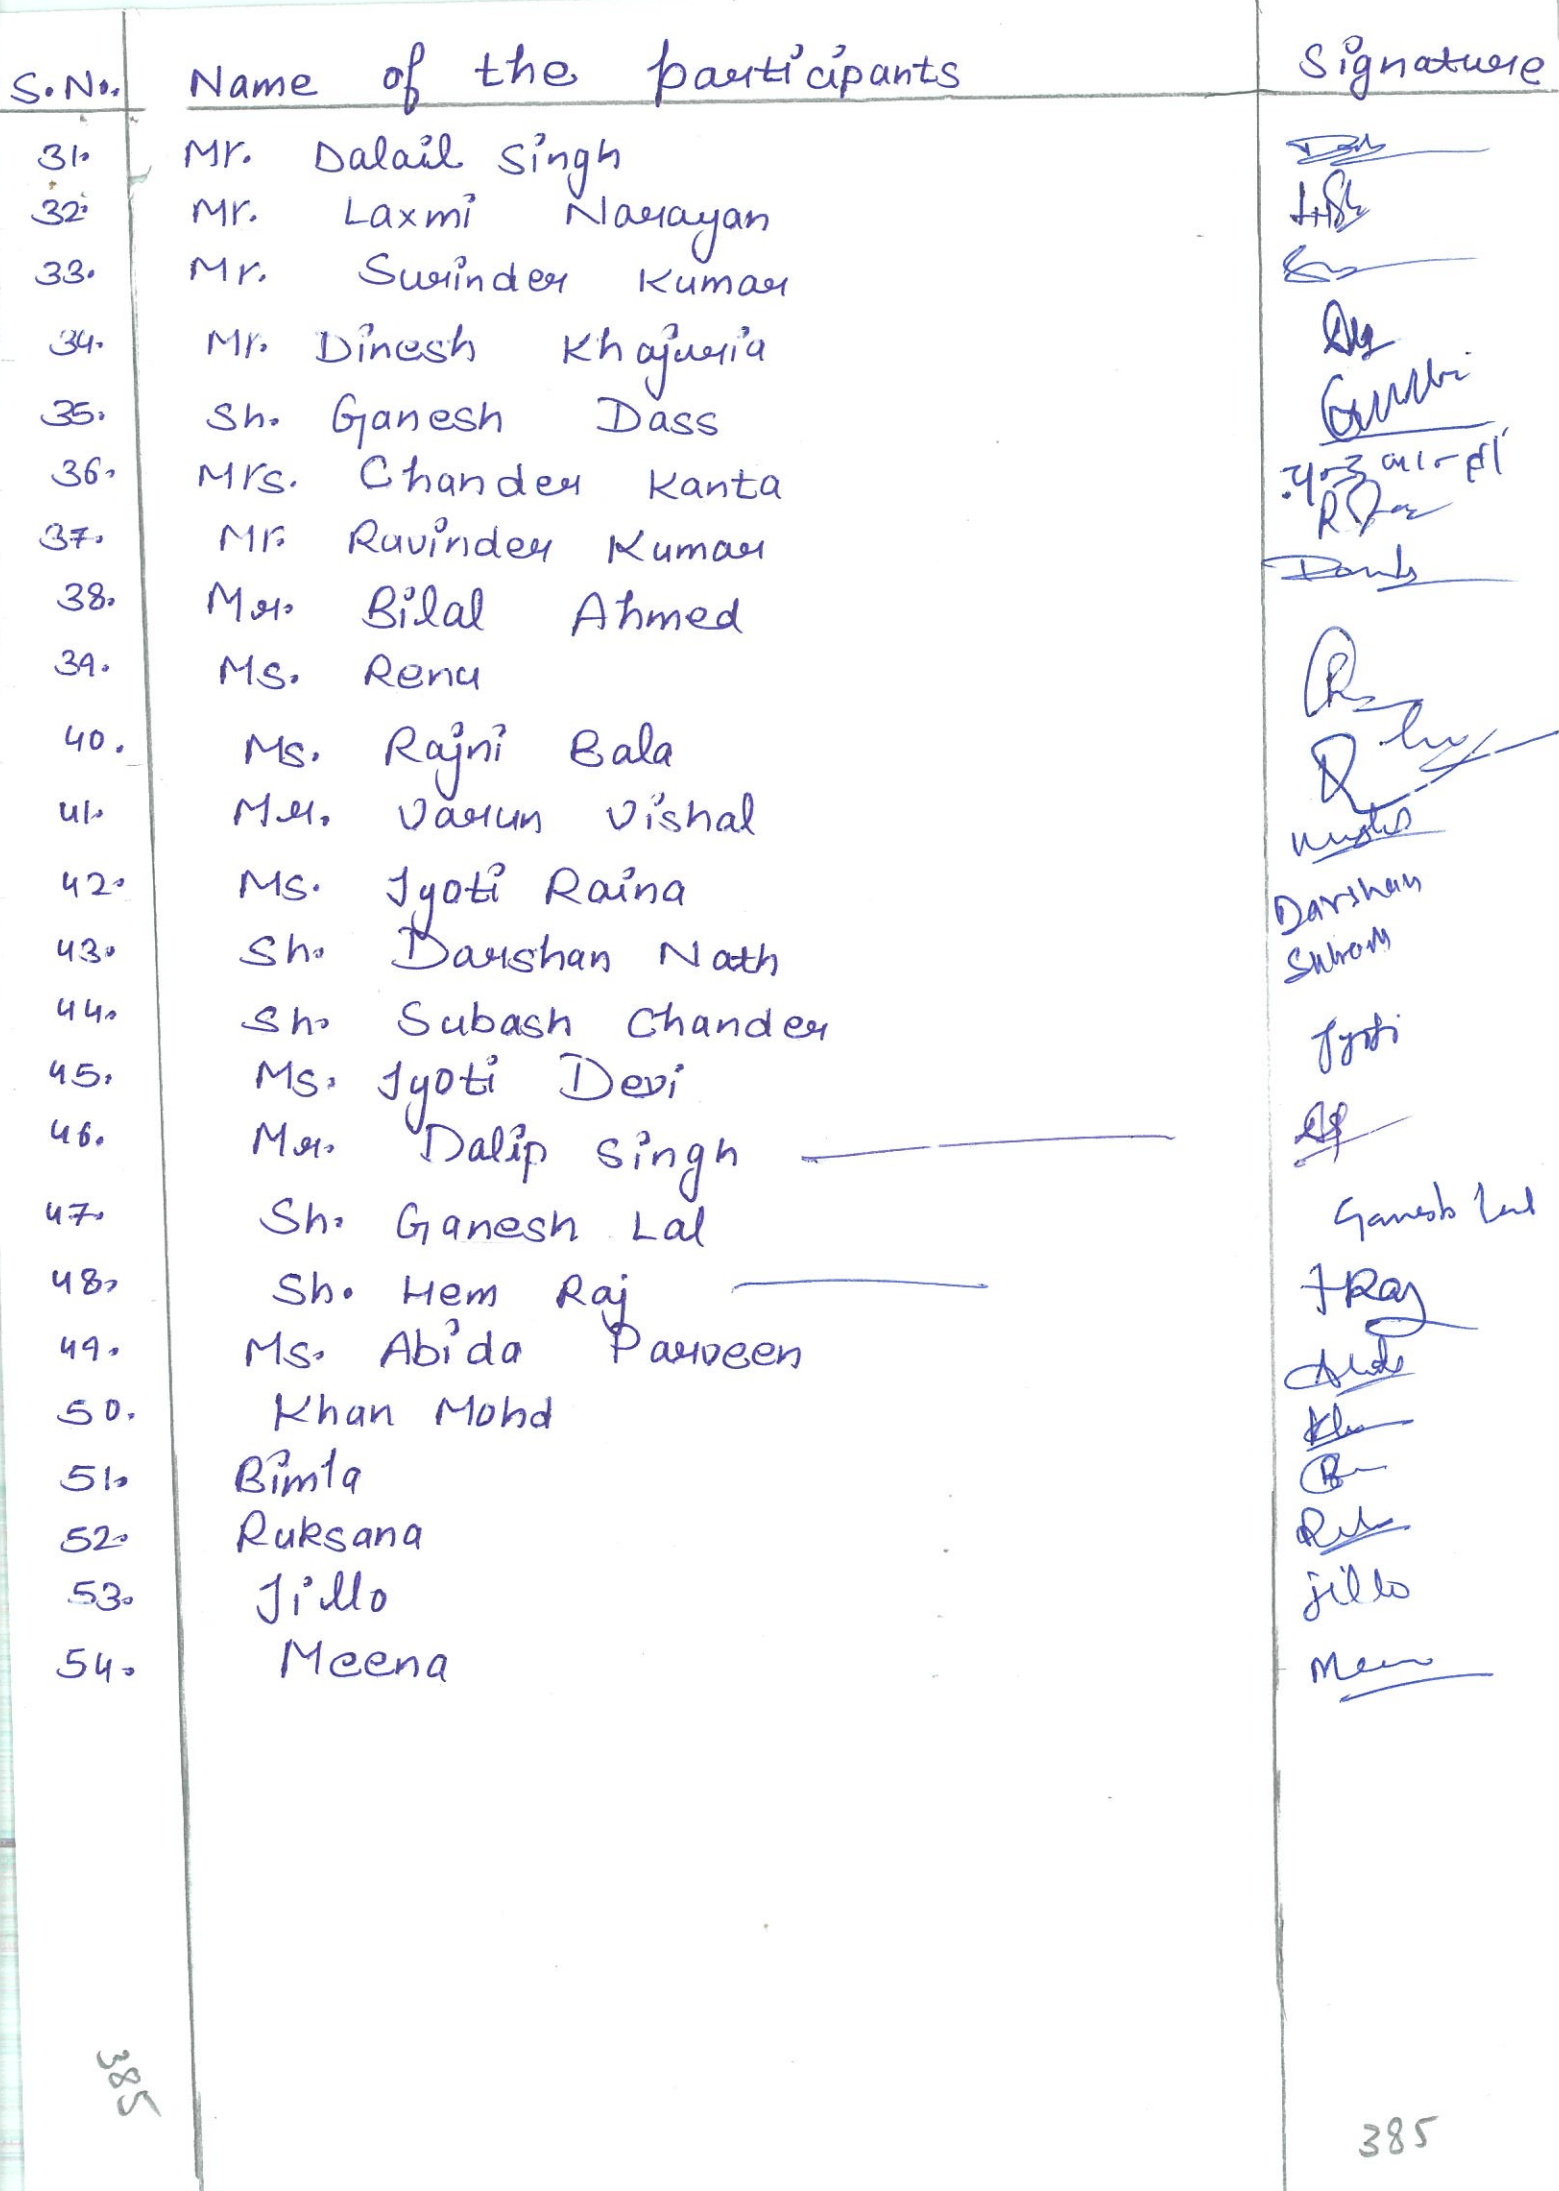 S.No. Name of the participants Signature
31. Mr. Dalail Singh
32. Mr. Laxmi Narayan
33. Mr. Surinder Kumar
34. Mr. Dinesh Khajuria
35. Sh. Ganesh Dass
36. Mrs. Chander Kanta
37. Mr. Ravinder Kumar
38. Mr. Bilal Ahmed
39. Ms. Renu
40. Ms. Rajni Bala
41. Mr. Varun Vishal
42. Ms. Jyoti Raina Darshan
43. Sh. Darshan Nath
44. Sh. Subash Chander Jyoti
45. Ms. Jyoti Devi
46. Mr. Dalip Singh
47. Sh. Ganesh Lal Ganesh Lal
48. Sh. Hem Raj HRaj
49. Ms. Abida Parveen
50. Khan Mohd
51. Bimla
52. Ruksana
53. Jillo jillo
54. Meena
385
385